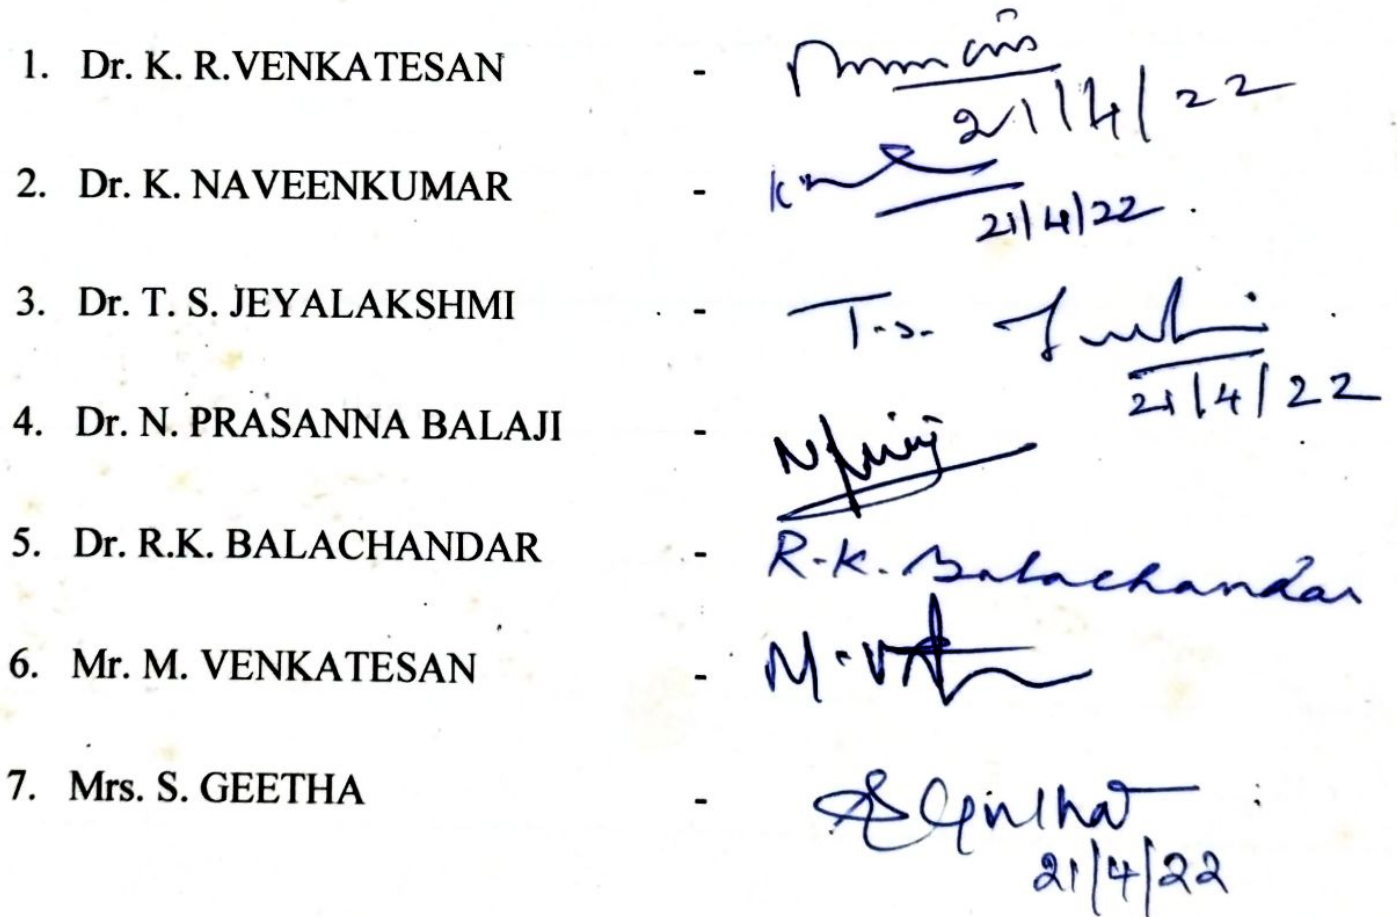 1. Dr. K. R.VENKATESAN -
21/4/22
2. Dr. K. NAVEENKUMAR -
21/4/22
3. Dr. T. S. JEYALAKSHMI - T.S.
21/4/22
4. Dr. N. PRASANNA BALAJI -
5. Dr. R.K. BALACHANDAR - R.K. Balachandar
6. Mr. M. VENKATESAN -
7. Mrs. S. GEETHA - S Geetha
21/4/22